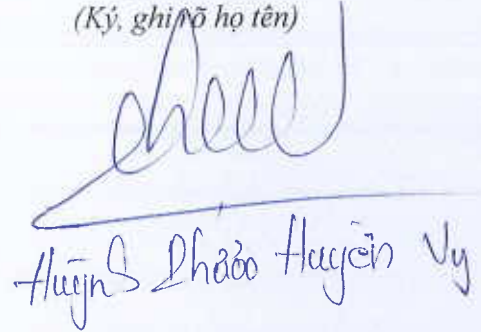 (Ký, ghi rõ họ tên)
Huỳnh Thảo Huyền Vy